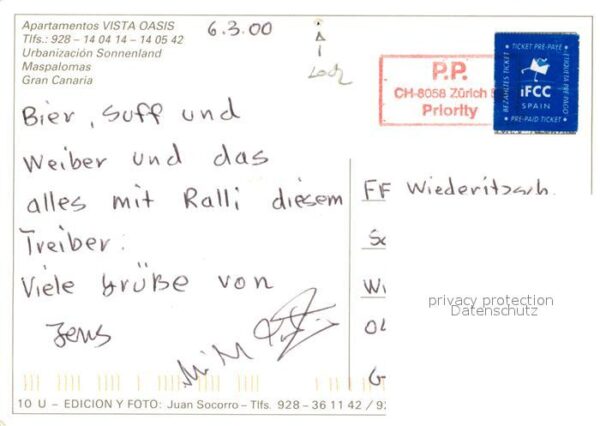 Apartamentos VISTA OASIS
Tlfs.: 928 – 14 04 14 – 14 05 42
Urbanización Sonnenland
Maspalomas
Gran Canaria
6.3.00
Loch
P.P.
CH-8058 Zürich
Priority
TICKET PRE-PAYE
BEZAHLTES TICKET
ETIQUETA PRE PAGO
iFCC
SPAIN
PRE-PAID TICKET
Bier, Suff und
Weiber und das
alles mit Ralli diesem
Treiber.
Viele Grüße von
Jens
FF Wiederitzsch.
privacy protection
Datenschutz
10 U – EDICION Y FOTO: Juan Socorro – Tlfs. 928 – 36 11 42 /